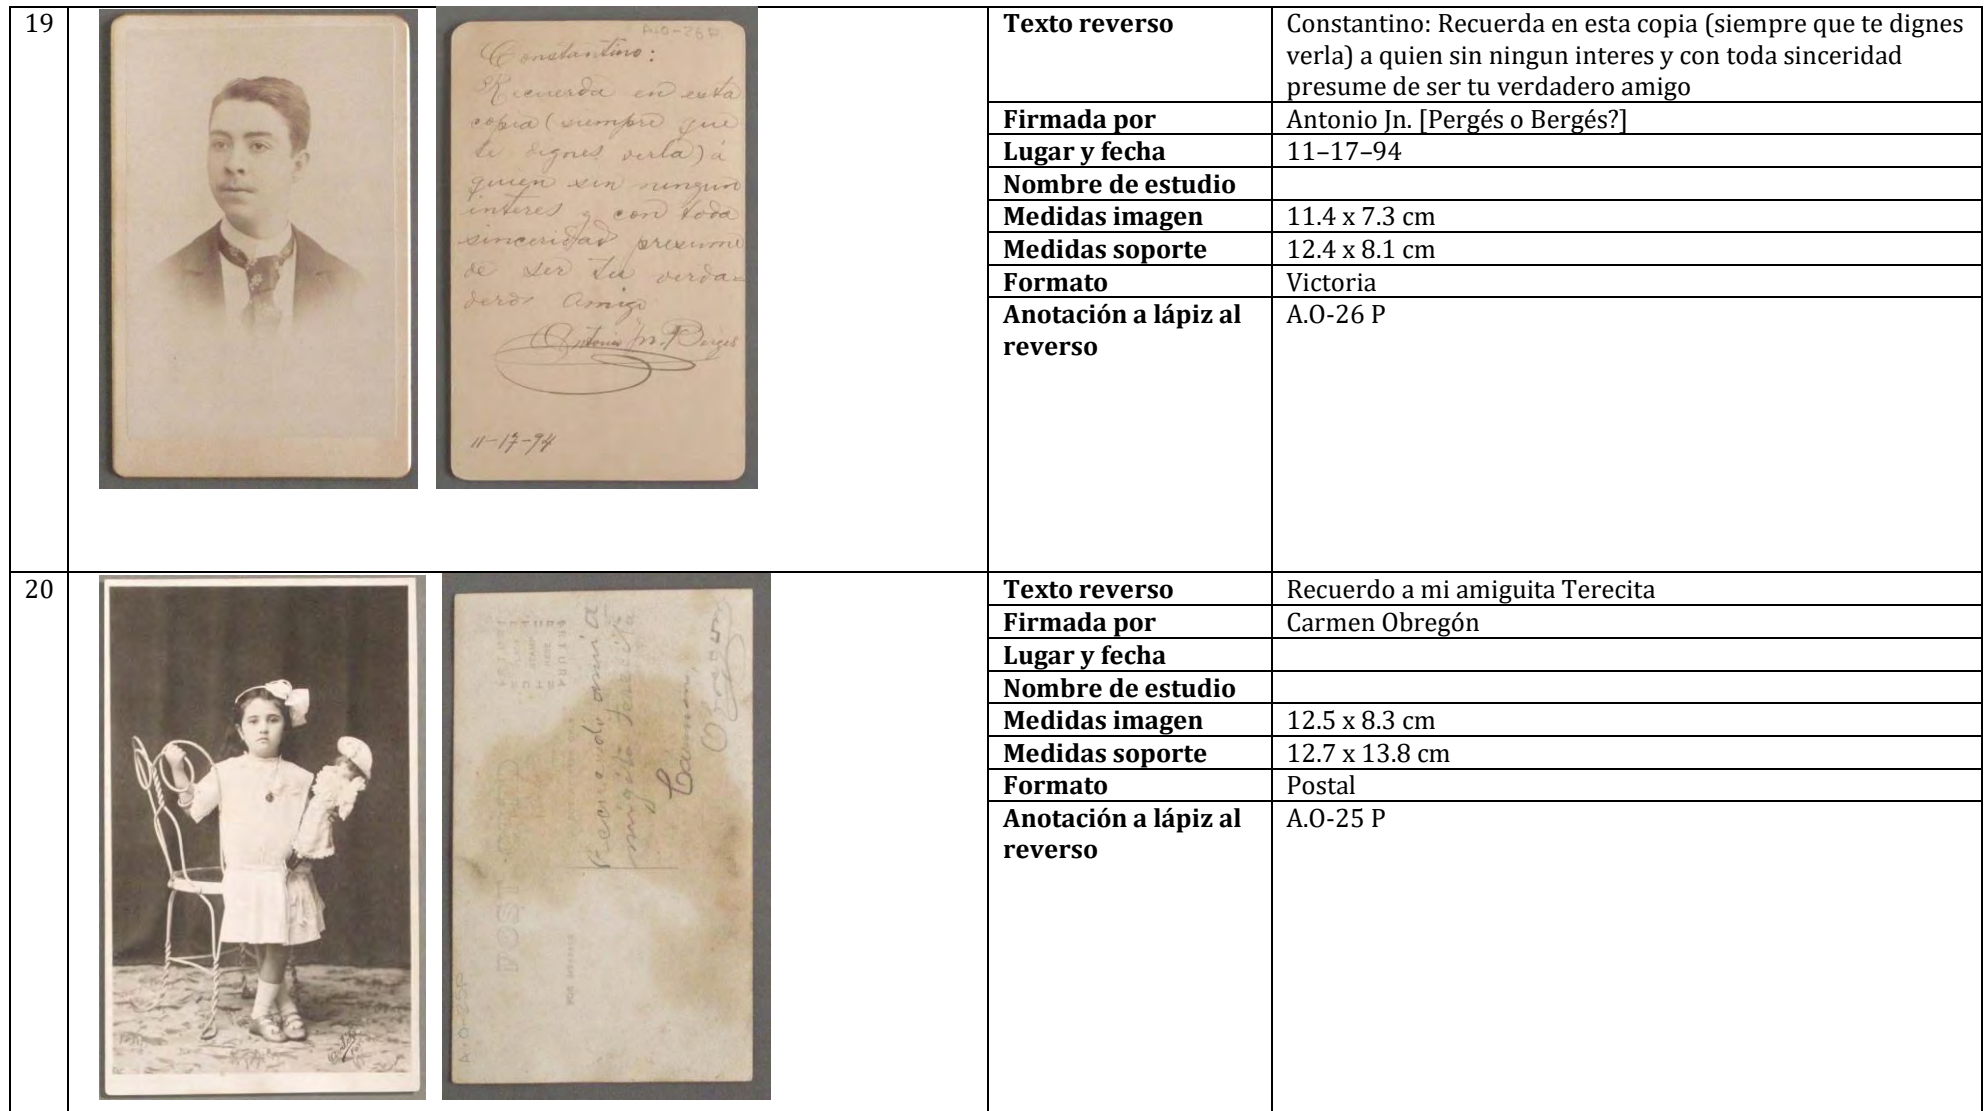 19
A.O-26P
Constantino:
Recuerda en esta
copia (siempre que
te dignes verla) á
quien sin ningun
interes y con toda
sinceridad presume
de ser tu verda-
dero amigo
Antonio Jn.
11-17-94
Texto reverso
Constantino: Recuerda en esta copia (siempre que te dignes
verla) a quien sin ningun interes y con toda sinceridad
presume de ser tu verdadero amigo
Firmada por
Antonio Jn. [Pergés o Bergés?]
Lugar y fecha
11–17–94
Nombre de estudio
Medidas imagen
11.4 x 7.3 cm
Medidas soporte
12.4 x 8.1 cm
Formato
Victoria
Anotación a lápiz al
reverso
A.O-26 P
20
Recuerdo a mi a
miguita Terecita
Carmen
Obregon
POST CARD
PLACE
STAMP
HERE
A.O-25P
Texto reverso
Recuerdo a mi amiguita Terecita
Firmada por
Carmen Obregón
Lugar y fecha
Nombre de estudio
Medidas imagen
12.5 x 8.3 cm
Medidas soporte
12.7 x 13.8 cm
Formato
Postal
Anotación a lápiz al
reverso
A.O-25 P